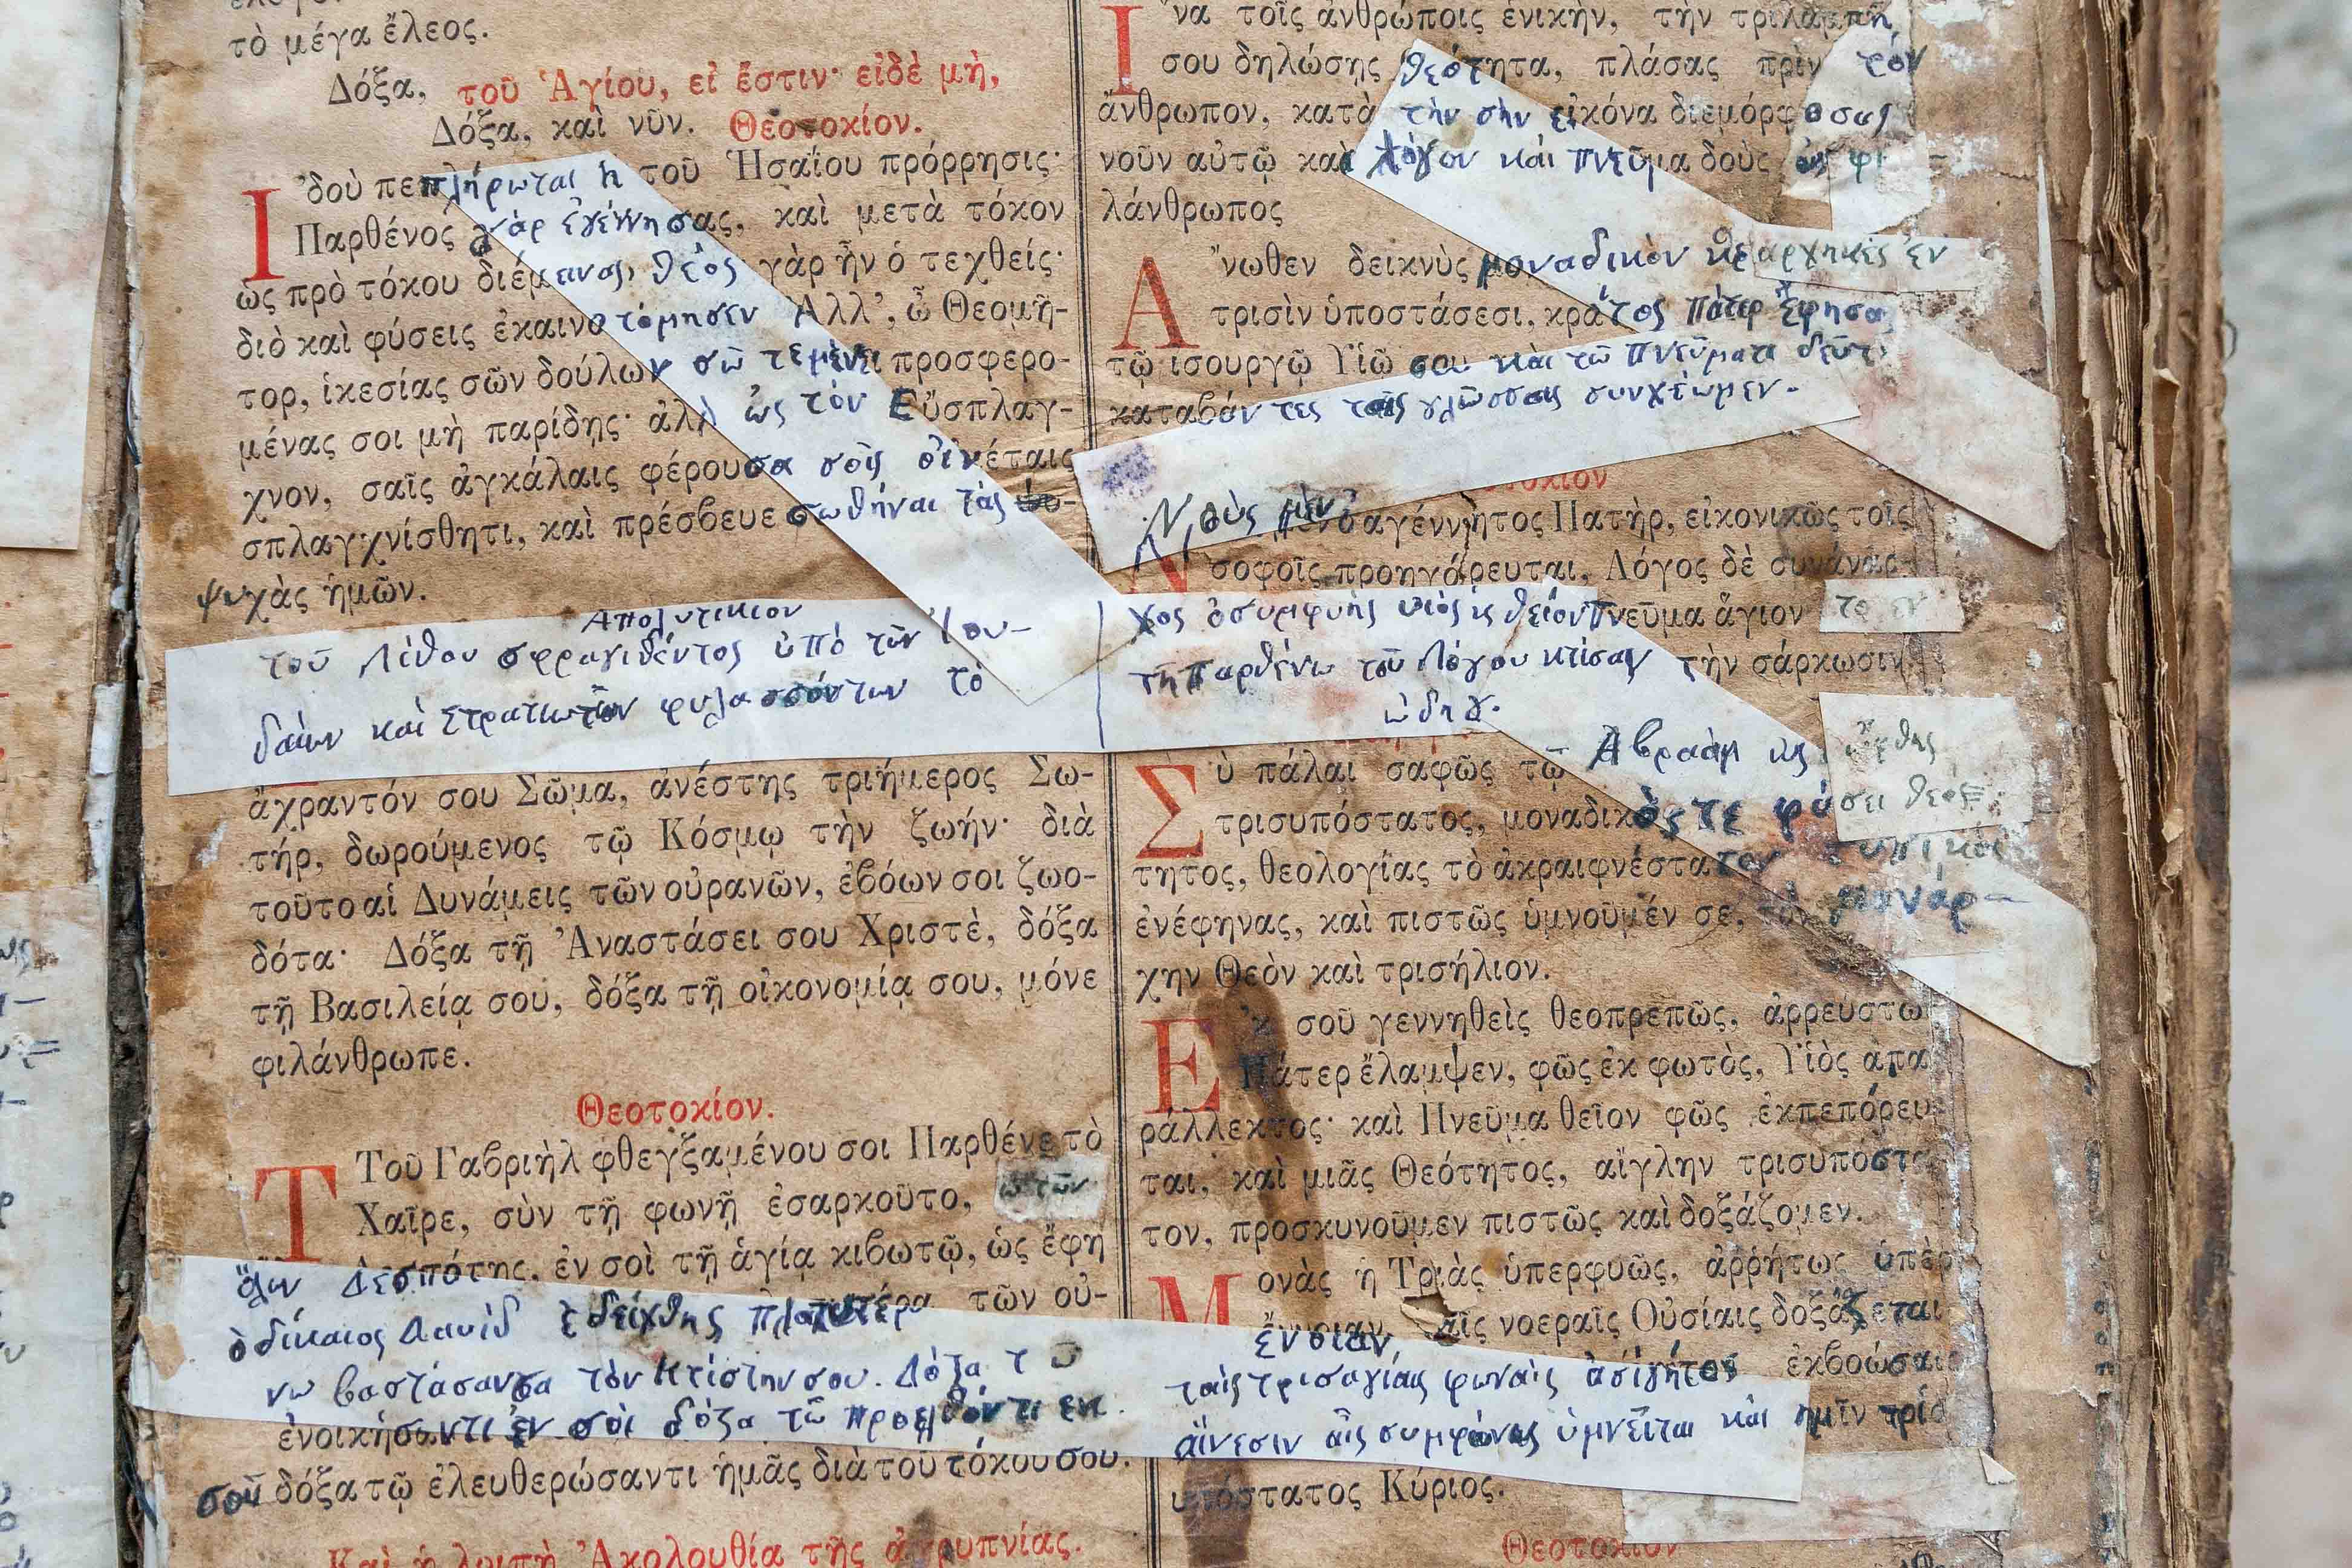 τὸ μέγα ἔλεος.
Δόξα, τοῦ Ἁγίου, εἰ ἔστιν· εἰδὲ μὴ,
Δόξα, καὶ νῦν. Θεοτοκίον.
Ἰδοὺ πεπλήρωται ἡ τοῦ Ἡσαΐου πρόρρησις·
Παρθένος γὰρ ἐγέννησας, καὶ μετὰ τόκον
ὡς πρὸ τόκου διέμεινας, Θεὸς γὰρ ἦν ὁ τεχθείς·
διὸ καὶ φύσεις ἐκαινοτόμησεν Ἀλλ', ὦ Θεομῆ-
τορ, ἱκεσίας σῶν δούλων σῶ τεμένει προσφερο-
μένας σοι μὴ παρίδης· ἀλλ ὡς τὸν Εὔσπλαγ-
χνον, σαῖς ἀγκάλαις φέρουσα σοῖς οἰκέταις
σπλαγχνίσθητι, καὶ πρέσβευε σωθῆναι τὰς
ψυχὰς ἡμῶν.
Απολυτικιον
τοῦ Λίθου σφραγισθέντος ὑπὸ τῶν Ἰου-
δαίων καὶ στρατιωτῶν φυλασσόντων τὸ
ἄχραντόν σου Σῶμα, ἀνέστης τριήμερος Σω-
τήρ, δωρούμενος τῷ Κόσμῳ τὴν ζωήν· διὰ
τοῦτο αἱ Δυνάμεις τῶν οὐρανῶν, ἐβόων σοι ζωο-
δότα· Δόξα τῇ Ἀναστάσει σου Χριστὲ, δόξα
τῇ Βασιλείᾳ σου, δόξα τῇ οἰκονομίᾳ σου, μόνε
φιλάνθρωπε.
Θεοτοκίον.
Τοῦ Γαβριὴλ φθεγξαμένου σοι Παρθένε τὸ
Χαῖρε, σὺν τῇ φωνῇ ἐσαρκοῦτο, ὁ τῶν
ὅλων Δεσπότης, ἐν σοὶ τῇ ἁγίᾳ κιβωτῷ, ὡς ἔφη
ὁ δίκαιος Δαυὶδ ἐδείχθης πλατυτέρα τῶν οὐ-
νω βαστάσανσα τὸν Κτίστην σου. Δόξα τ ῶ
ἐνοικήσαντι ἐν σοὶ δόξα τῶ προελθόντι εκ
σοῦ δόξα τῷ ἐλευθερώσαντι ἡμᾶς διὰ τοῦ τόκου σου.
Καὶ ἡ λοιπὴ Ἀκολουθία τῆς ἀγρυπνίας.
Ἵνα τοῖς ἀνθρώποις ἑνικὴν, τὴν τριλαμπῆ
σου δηλώσῃς θεότητα, πλάσας πρὶν τὸν
ἄνθρωπον, κατὰ τὴν σὴν εἰκόνα διεμόρφοσας
νοῦν αὐτῷ καὶ λόγον καὶ πνεῦμα δοὺς ὡς φι-
λάνθρωπος
Ἄνωθεν δεικνὺς μοναδικὸν θεαρχικὲς ἐν
τρισὶν ὑποστάσεσι, κράτος πάτερ ἔφησα
τῷ ἰσουργῷ Υἱῷ σου καὶ τῶ πνεύματι δεῦτ
καταβάντες τὰς γλώσσας συνχέωμεν.
Νοὺς μὲν ὁ ἀγέννητος Πατὴρ, εἰκονικῶς τοῖς
σοφοῖς προηγόρευται, Λόγος δὲ συνάναρ-
χος ὁ συμφυὴς υἱὸς κ θεῖον Πνεῦμα ἅγιον το εν
τῆ Παρθένω τοῦ Λόγου κτίσαν τὴν σάρκωσιν.
ὠδη γ.
Σὺ πάλαι σαφῶς τῷ Ἀβραὰμ ὡς ὤφθης
τρισυπόστατος, μοναδικὸς τε φύσει θεό-
τητος, θεολογίας τὸ ἀκραιφνέστατον
ἐνέφηνας, καὶ πιστῶς ὑμνοῦμέν σε, τὸν μονάρ-
χην Θεὸν καὶ τρισήλιον.
Ἐκ σοῦ γεννηθεὶς θεοπρεπῶς, ἀρρεύστω
Πάτερ ἔλαμψεν, φῶς ἐκ φωτὸς, Υἱὸς ἀπα
ράλλεκτος· καὶ Πνεῦμα θεῖον φῶς ἐκπεπόρευ
ται, καὶ μιᾶς Θεότητος, αἴγλην τρισυπόστα
τον, προσκυνοῦμεν πιστῶς καὶ δοξάζομεν.
Μονὰς ἡ Τριὰς ὑπερφυῶς, ἀρρήτως ὑπὲρ
ἔννοιαν, ταῖς νοεραῖς Οὐσίαις δοξάζεται
ταὶς τρισαγίαις φωναὶς ἀσιγήτος ἐκβοώσαις
αἴνεσιν αἷς συμφώνως ὑμνεῖται καὶ ημῖν τρίσ
υπόστατος Κύριος.
Θεοτοκίον